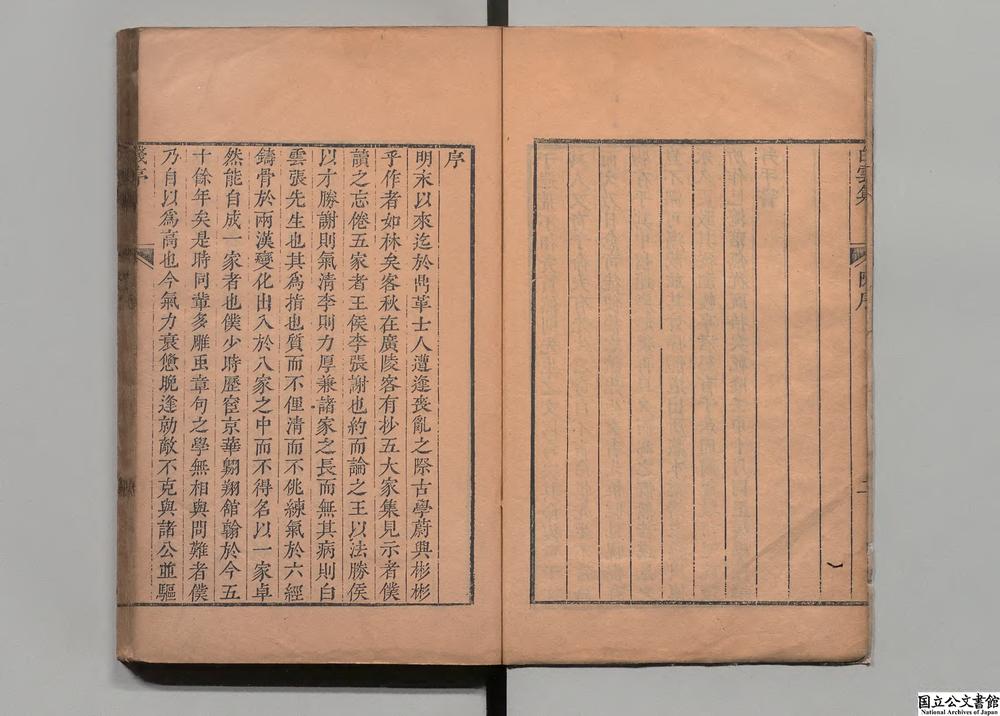 白雲集
陳序
二
序
明末以來迄於鼎革士人遭逢喪亂之際古學蔚興彬彬
乎作者如林矣客秋在廣陵客有抄五大家集見示者僕
讀之忘倦五家者王侯李張謝也約而論之王以法勝侯
以才勝謝則氣清李則力厚兼諸家之長而無其病則白
雲張先生也其為指也質而不俚清而不佻練氣於六經
鑄骨於兩漢變化出入於八家之中而不得名以一家卓
然能自成一家者也僕少時歷宦京華翺翔館翰於今五
十餘年矣是時同輩多雕虫章句之學無相與問難者僕
乃自以為高也今氣力衰憊晚逢勍敵不克與諸公並驅
錢序
国立公文書館
National Archives of Japan